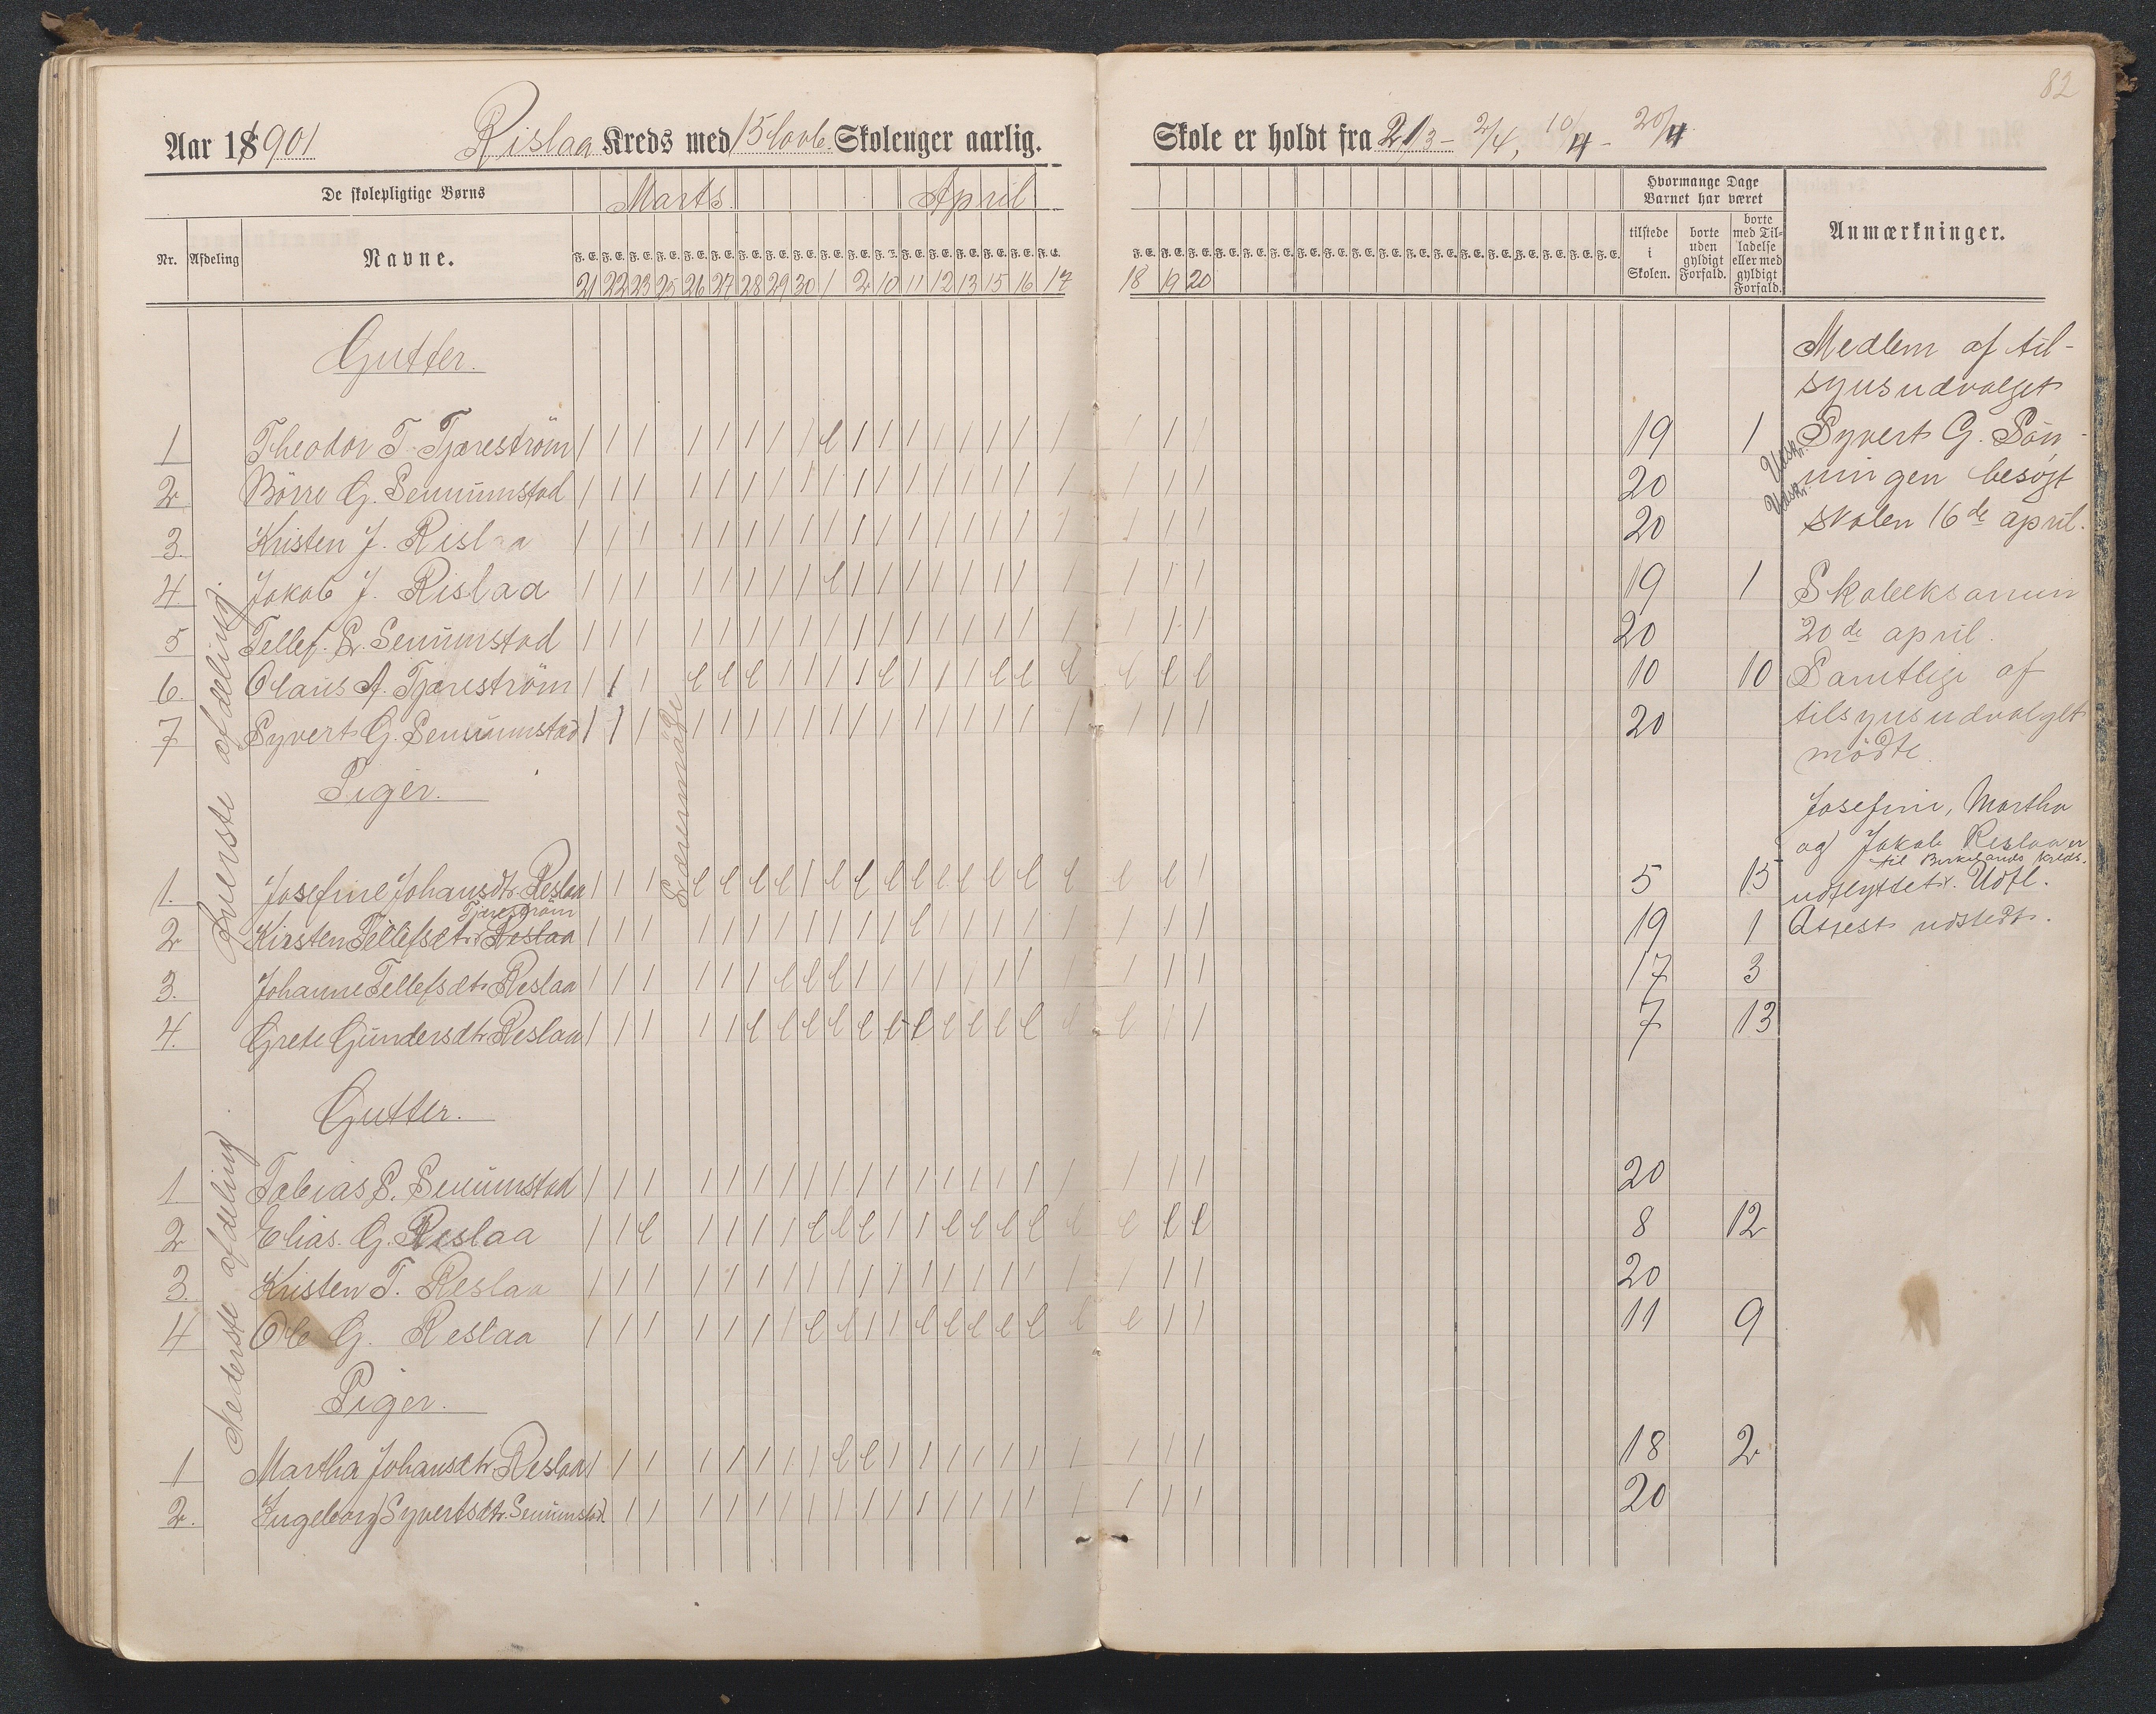 82
Aar 18901 Rislaa Kreds med 15 Skoleuger aarlig.
Skole er holdt fra 21/3 - 2/4, 10/4 - 20/4
De skolepligtige Børns
Marts. April
Nr. Afdeling Navne.
F. E. F. E. F. E. F. E. F. E. F. E. F. E. F. E. F. E. F. E. F. E. F. E. F. E. F. E. F. E. F. E. F. E. F. E.
21 22 23 25 26 27 28 29 30 1 2 10 11 12 13 15 16 17
18 19 20
Hvormange Dage
Barnet har været
tilstede i Skolen.
borte uden gyldigt Forfald.
borte med Tilladelse eller med gyldigt Forfald.
Anmærkninger.
Øverste afdeling.
Gutter.
1 Theodor T. Tjæreström / / / / / / / / e / / / / / / / / / / / 19 1
2 Börre G. Senumstad / / / / / / / / / / / / / / / / / / / / 20
3. Kristen J. Rislaa / / / / / / / / / / / / / / / / / / / / 20
4. Jakob J. Rislaa / / / / / / / / e / / / / / / / / / / / 19 1
5 Tellef. S. Senumstad / / / / / / / / / / / / / / / / / / / / 20
6. Olaus A. Tjæreström / / / e e e / / / / e / / e e e e e e 10 10
7 Syvert G. Senumstad / / / / / / / / / / / / / / / / / / / / 20
Lærermöde
Piger.
1. Josefine Johansdtr. Reslaa / / / e e e e / e e e e e e e e e e e / 5 15
Tjæreström
2 Kirsten Tellefsdtr. Reslaa / / / / / / / / / / / e / / / / / / / / 19 1
3. Johanne Tellefsdtr. Reslaa / / / / / / e e e / / / / / / / / / / / 17 3
4. Grete Gundersdtr. Reslaa / / / / / e e e e e e e e e e e e e / / 7 13
Nederste afdeling.
Gutter.
1 Tobias S. Senumstad / / / / / / / / / / / / / / / / / / / / 20
2 Elias. G. Reslaa / / e / / / / e e e / / e e e e e e e e 8 12
3. Kristen T. Reslaa / / / / / / / / / / / / / / / / / / / / 20
4 Ole G. Reslaa / / / / / / / e e / / e e e e e e e / / 11 9
Piger.
1 Martha Johansdtr. Reslaa / / / / / / / / e e / / / / / / / / / / 18 2
2. Ingeborg Syvertsdtr. Senumstad / / / / / / / / / / / / / / / / / / / 20
Medlem af til-
synsudvalget
Udskr. Syvert G. Søn-
Udskr. ningen besøgt
skolen 16de april.
Skoleeksamen
20de april.
Samtlige af
tilsynsudvalget
mödte.
Josefine, Martha
og Jakob Reslaa er
til Birkelands kreds.
udflyttet. Udfl.
Attest udstedt.